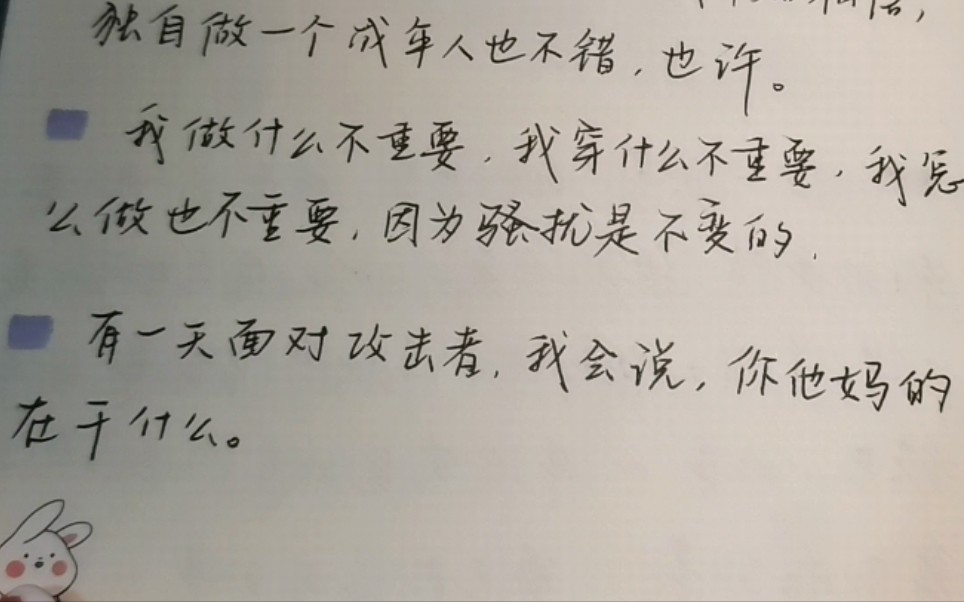 独自做一个成年人也不错，也许。
我做什么不重要，我穿什么不重要，我怎
么做也不重要，因为骚扰是不变的，
有一天面对攻击者，我会说，你他妈的
在干什么。